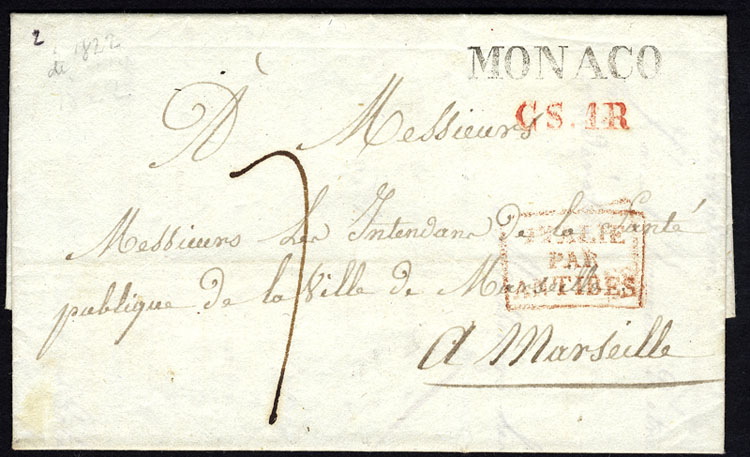 2
de 1822
1822
MONACO
CS.1R
À Messieurs
7
Messieurs Les Intendans de la Santé
publique de la Ville de Marseille
ITALIE
PAR
ANTIBES
A Marseille